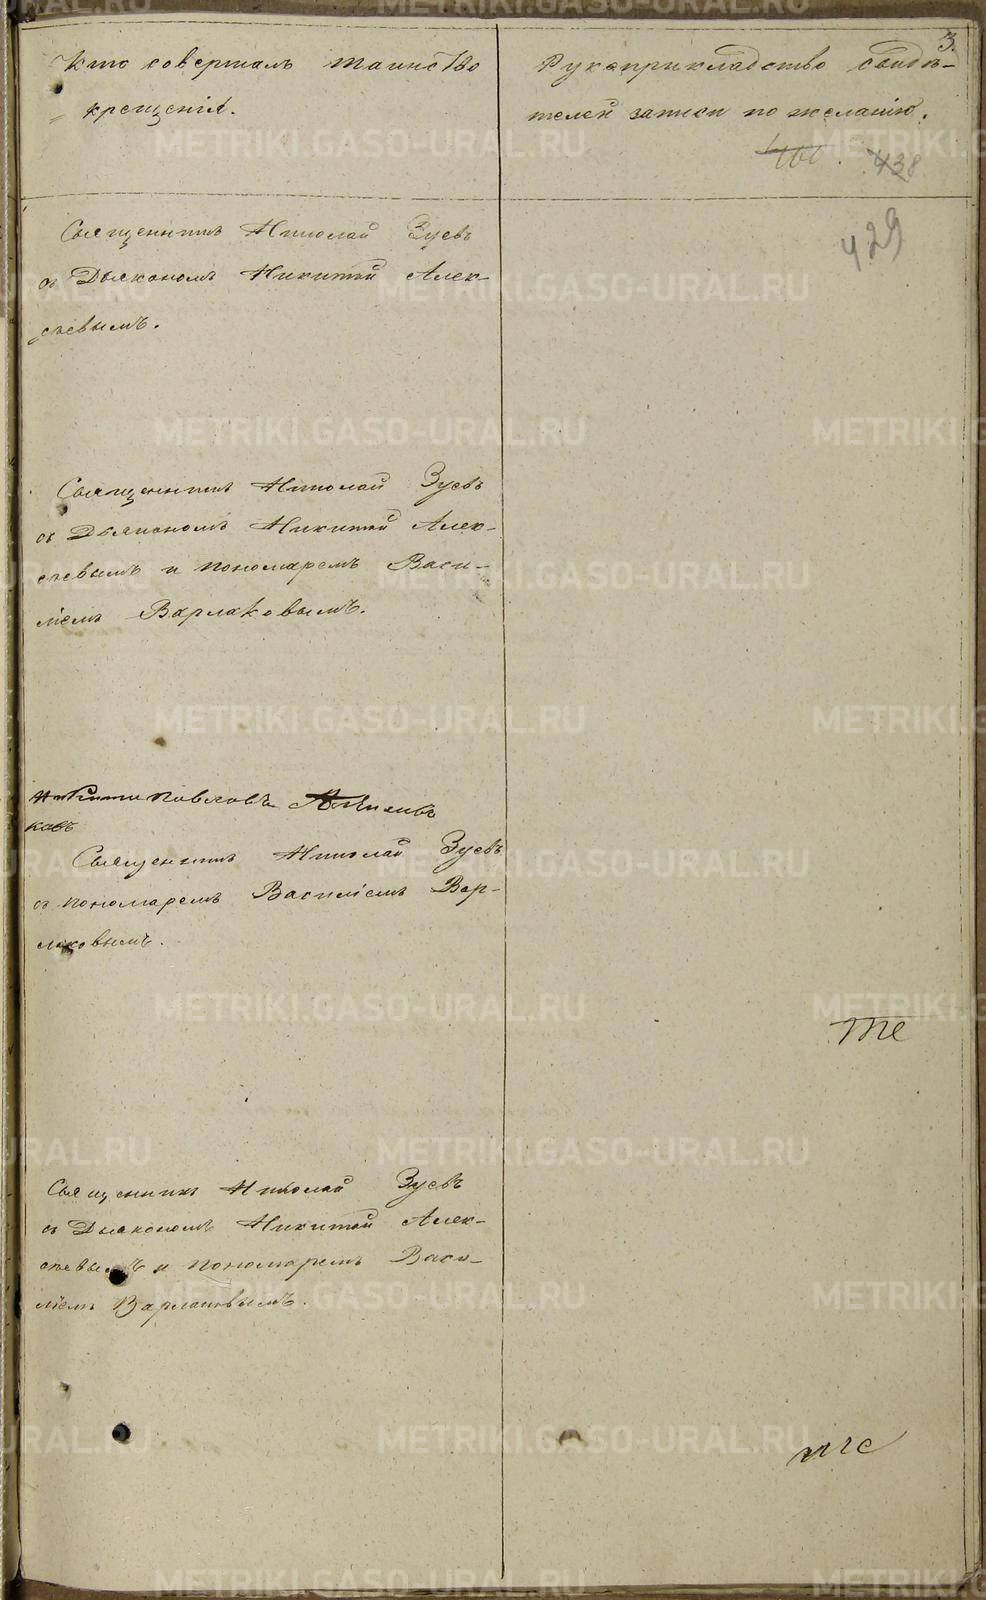 3.
Кто совершалъ таинство
крещенія.
Рукоприкладство свидѣ-
телей записи по желанію.
438
429
Священникъ Николай Зуевъ
съ Дьякономъ Никитой Алек-
сѣевымъ.
Священникъ Николай Зуевъ
съ Дьякономъ Никитой Алек-
сѣевымъ и пономаремъ Васи-
ліемъ Варлаковымъ.
Павловъ
ковъ
Священникъ Николай Зуевъ
съ пономаремъ Василіемъ Вар-
лаковымъ.
Священникъ Николай Зуевъ
съ Дьякономъ Никитой Алек-
сѣевымъ и пономаремъ Васи-
ліемъ Варлаковымъ.
METRIKI.GASO-URAL.RU